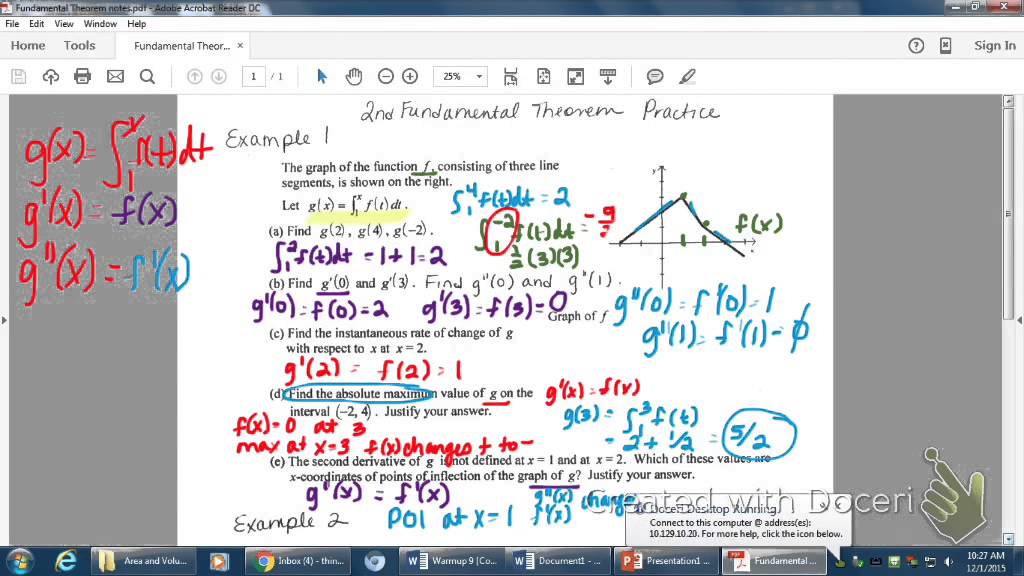 Fundamental Theorem notes.pdf - Adobe Acrobat Reader DC
File Edit View Window Help
Home Tools Fundamental Theor... × Sign In
1 / 1 25%
2nd Fundamental Theorem Practice
Example 1
g(x) = ∫₁ˣ f(t) dt
g'(x) = f(x)
g"(x) = f'(x)
The graph of the function f, consisting of three line
segments, is shown on the right.
Let g(x) = ∫₁ˣ f(t) dt.
∫₁⁴ f(t)dt = 2
(a) Find g(2), g(4), g(−2).
∫₁⁻² f(t)dt = -9/2
½(3)(3)
∫₁² f(t)dt = 1 + 1 = 2
y
x
f(x)
Graph of f
(b) Find g'(0) and g'(3). Find g"(0) and g"(1).
g'(0) = f(0) = 2 g'(3) = f(3) = 0
g"(0) = f'(0) = 1
g"(1) = f'(1) = ∅
(c) Find the instantaneous rate of change of g
with respect to x at x = 2.
g'(2) = f(2) = 1
(d) Find the absolute maximum value of g on the
interval (−2, 4). Justify your answer.
g'(x) = f(x)
g(3) = ∫₁³ f(t)
= 2 + 1/2 = 5/2
f(x) = 0 at 3
max at x=3 f(x) changes + to -
(e) The second derivative of g is not defined at x = 1 and at x = 2. Which of these values are
x-coordinates of points of inflection of the graph of g? Justify your answer.
g"(x) = f'(x)
g"(x) change
POI at x=1 f'(x)
Example 2
Created with Doceri
Doceri Desktop Running
Connect to this computer @ address(es):
10.129.10.20. For more help, click the icon below.
Area and Volu... Inbox (4) - thin... Warmup 9 [Co... Document1 - ... Presentation1 ... Fundamental ...
10:27 AM
12/1/2015